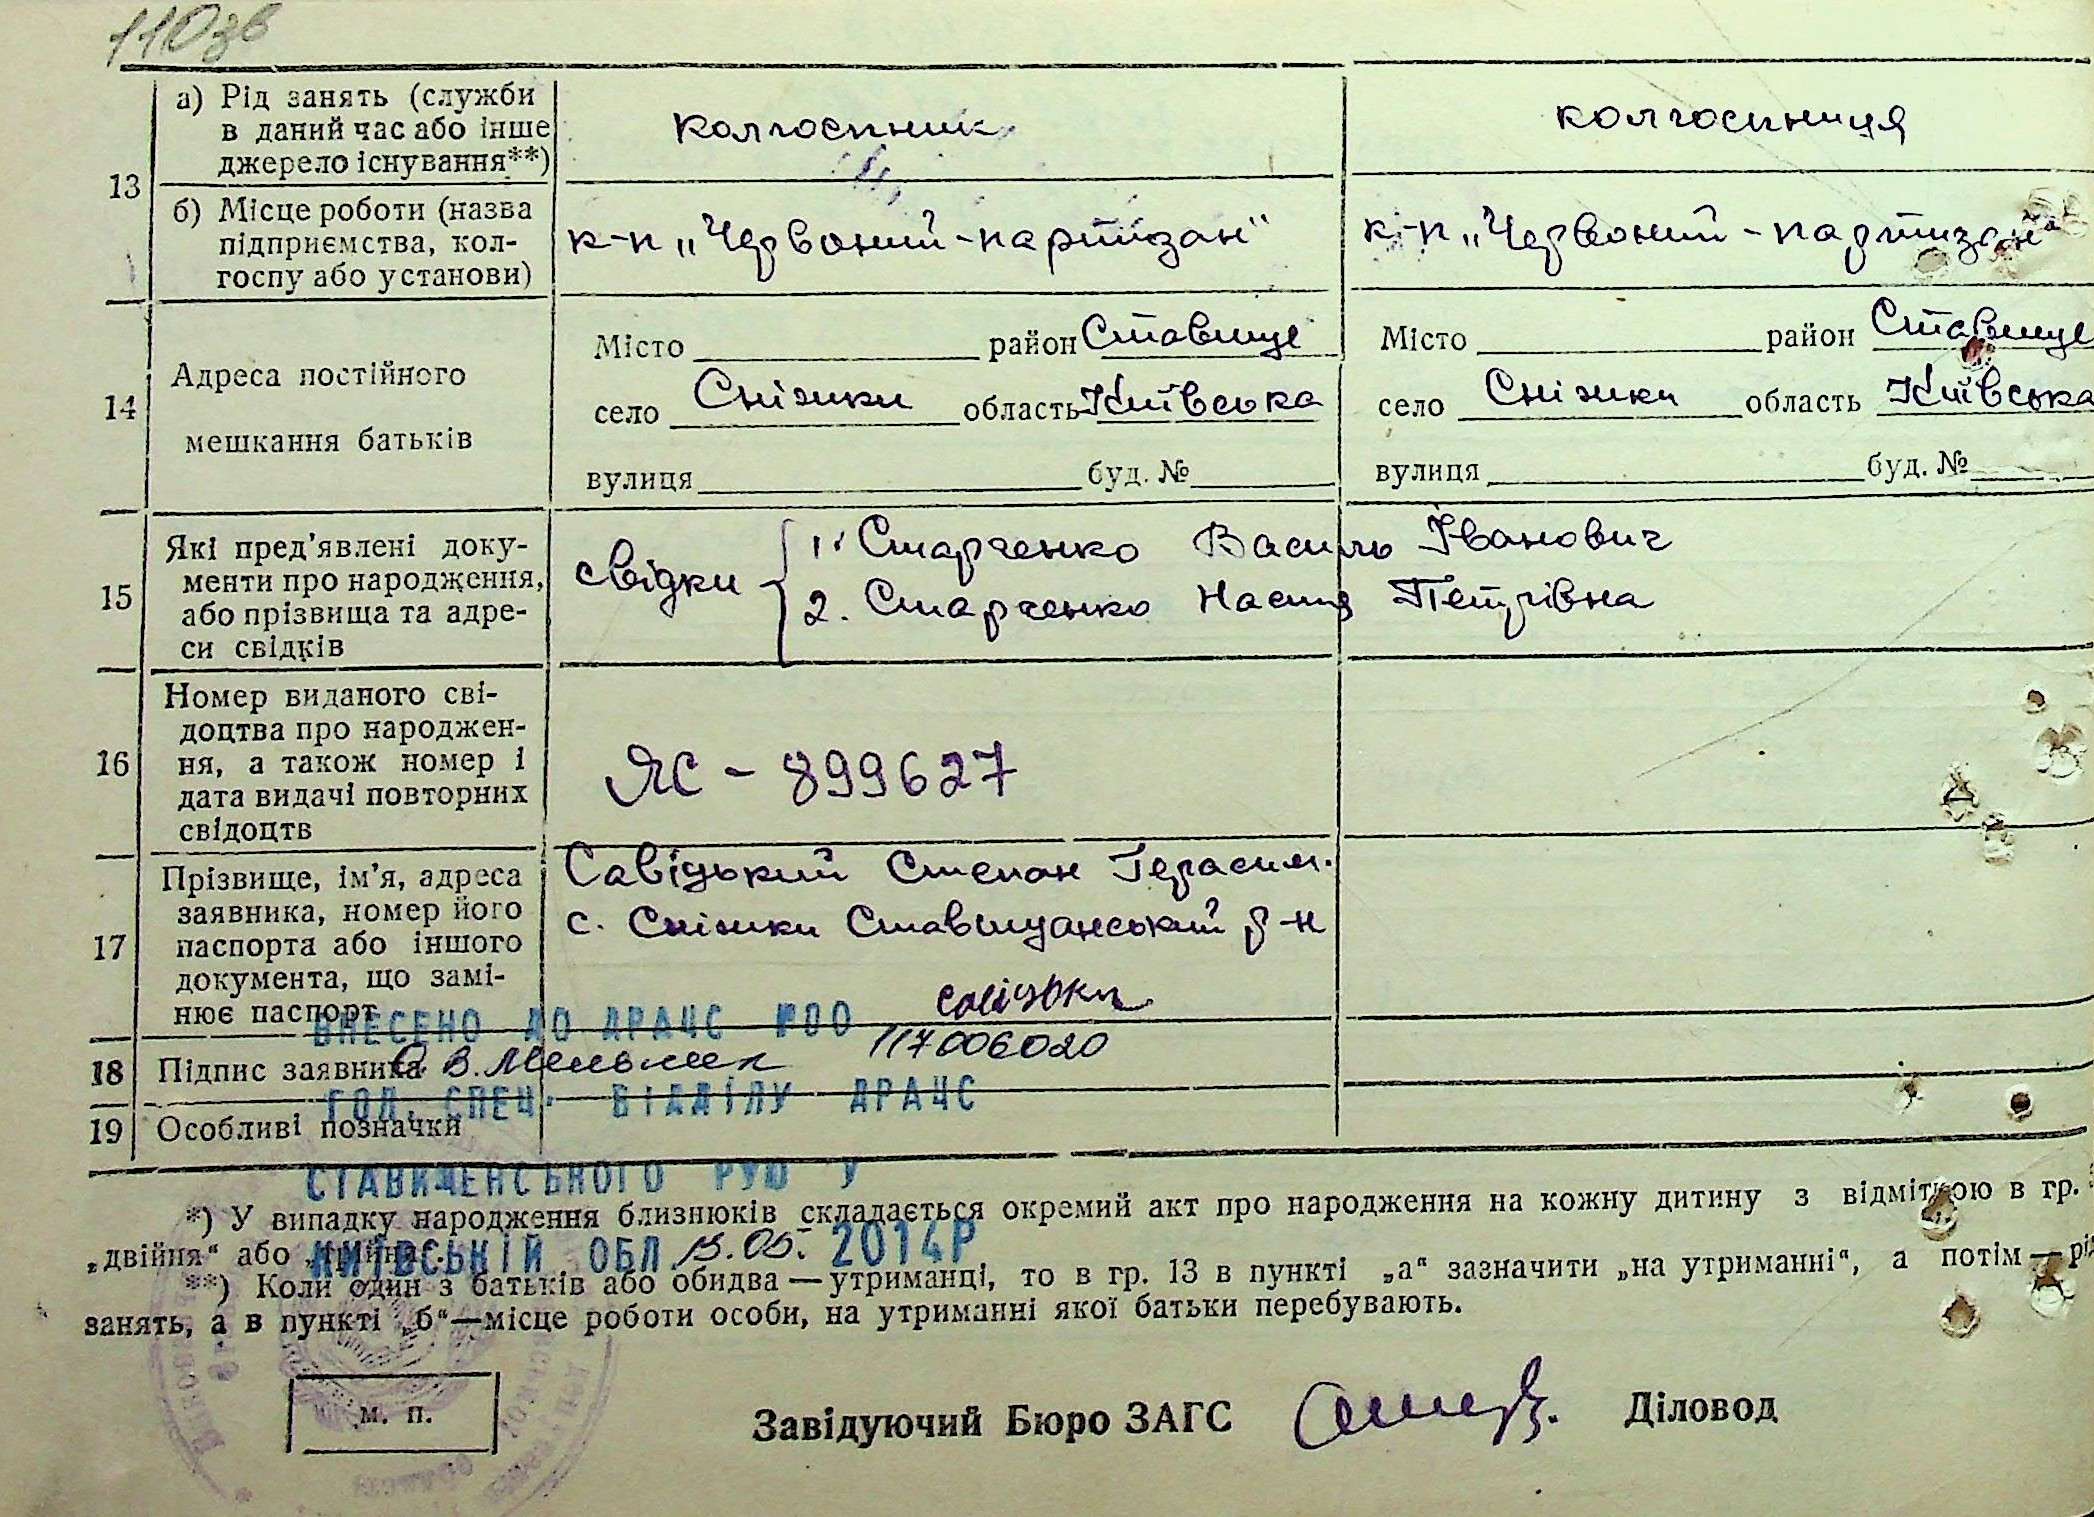 110зв
13
а) Рід занять (служби
в даний час або інше
джерело існування**)
колгоспник
колгоспниця
б) Місце роботи (назва
підприємства, кол-
госпу або установи)
к-п „Червоний-партизан"
к-п „Червоний-партизан"
14
Адреса постійного
мешкання батьків
Місто район Ставище
село Сніжки область Київська
вулиця буд. №
Місто район Ставище
село Сніжки область Київська
вулиця буд. №
15
Які пред'явлені доку-
менти про народження,
або прізвища та адре-
си свідків
свідки
1. Старченко Василь Іванович
2. Старченко Настя Петрівна
16
Номер виданого сві-
доцтва про народжен-
ня, а також номер і
дата видачі повторних
свідоцтв
ЯС - 899627
17
Прізвище, ім'я, адреса
заявника, номер його
паспорта або іншого
документа, що замі-
нює паспорт
Савіцький Степан Герасим.
с. Сніжки Ставищанський р-н
18 Підпис заявника
19 Особливі позначки
ВНЕСЕНО ДО ДРАЦС №00
117006020
ГОЛ. СПЕЦ. ВІДДІЛУ ДРАЦС
СТАВИЩЕНСЬКОГО РУЮ У
КИЇВСЬКІЙ ОБЛ 15.05. 2014Р
*) У випадку народження близнюків складається окремий акт про народження на кожну дитину з відміткою в гр.
„двійня" або „трійня".
**) Коли один з батьків або обидва — утриманці, то в гр. 13 в пункті „а" зазначити „на утриманні", а потім — рід
занять, а в пункті „б"—місце роботи особи, на утриманні якої батьки перебувають.
м. п.
Завідуючий Бюро ЗАГС Діловод